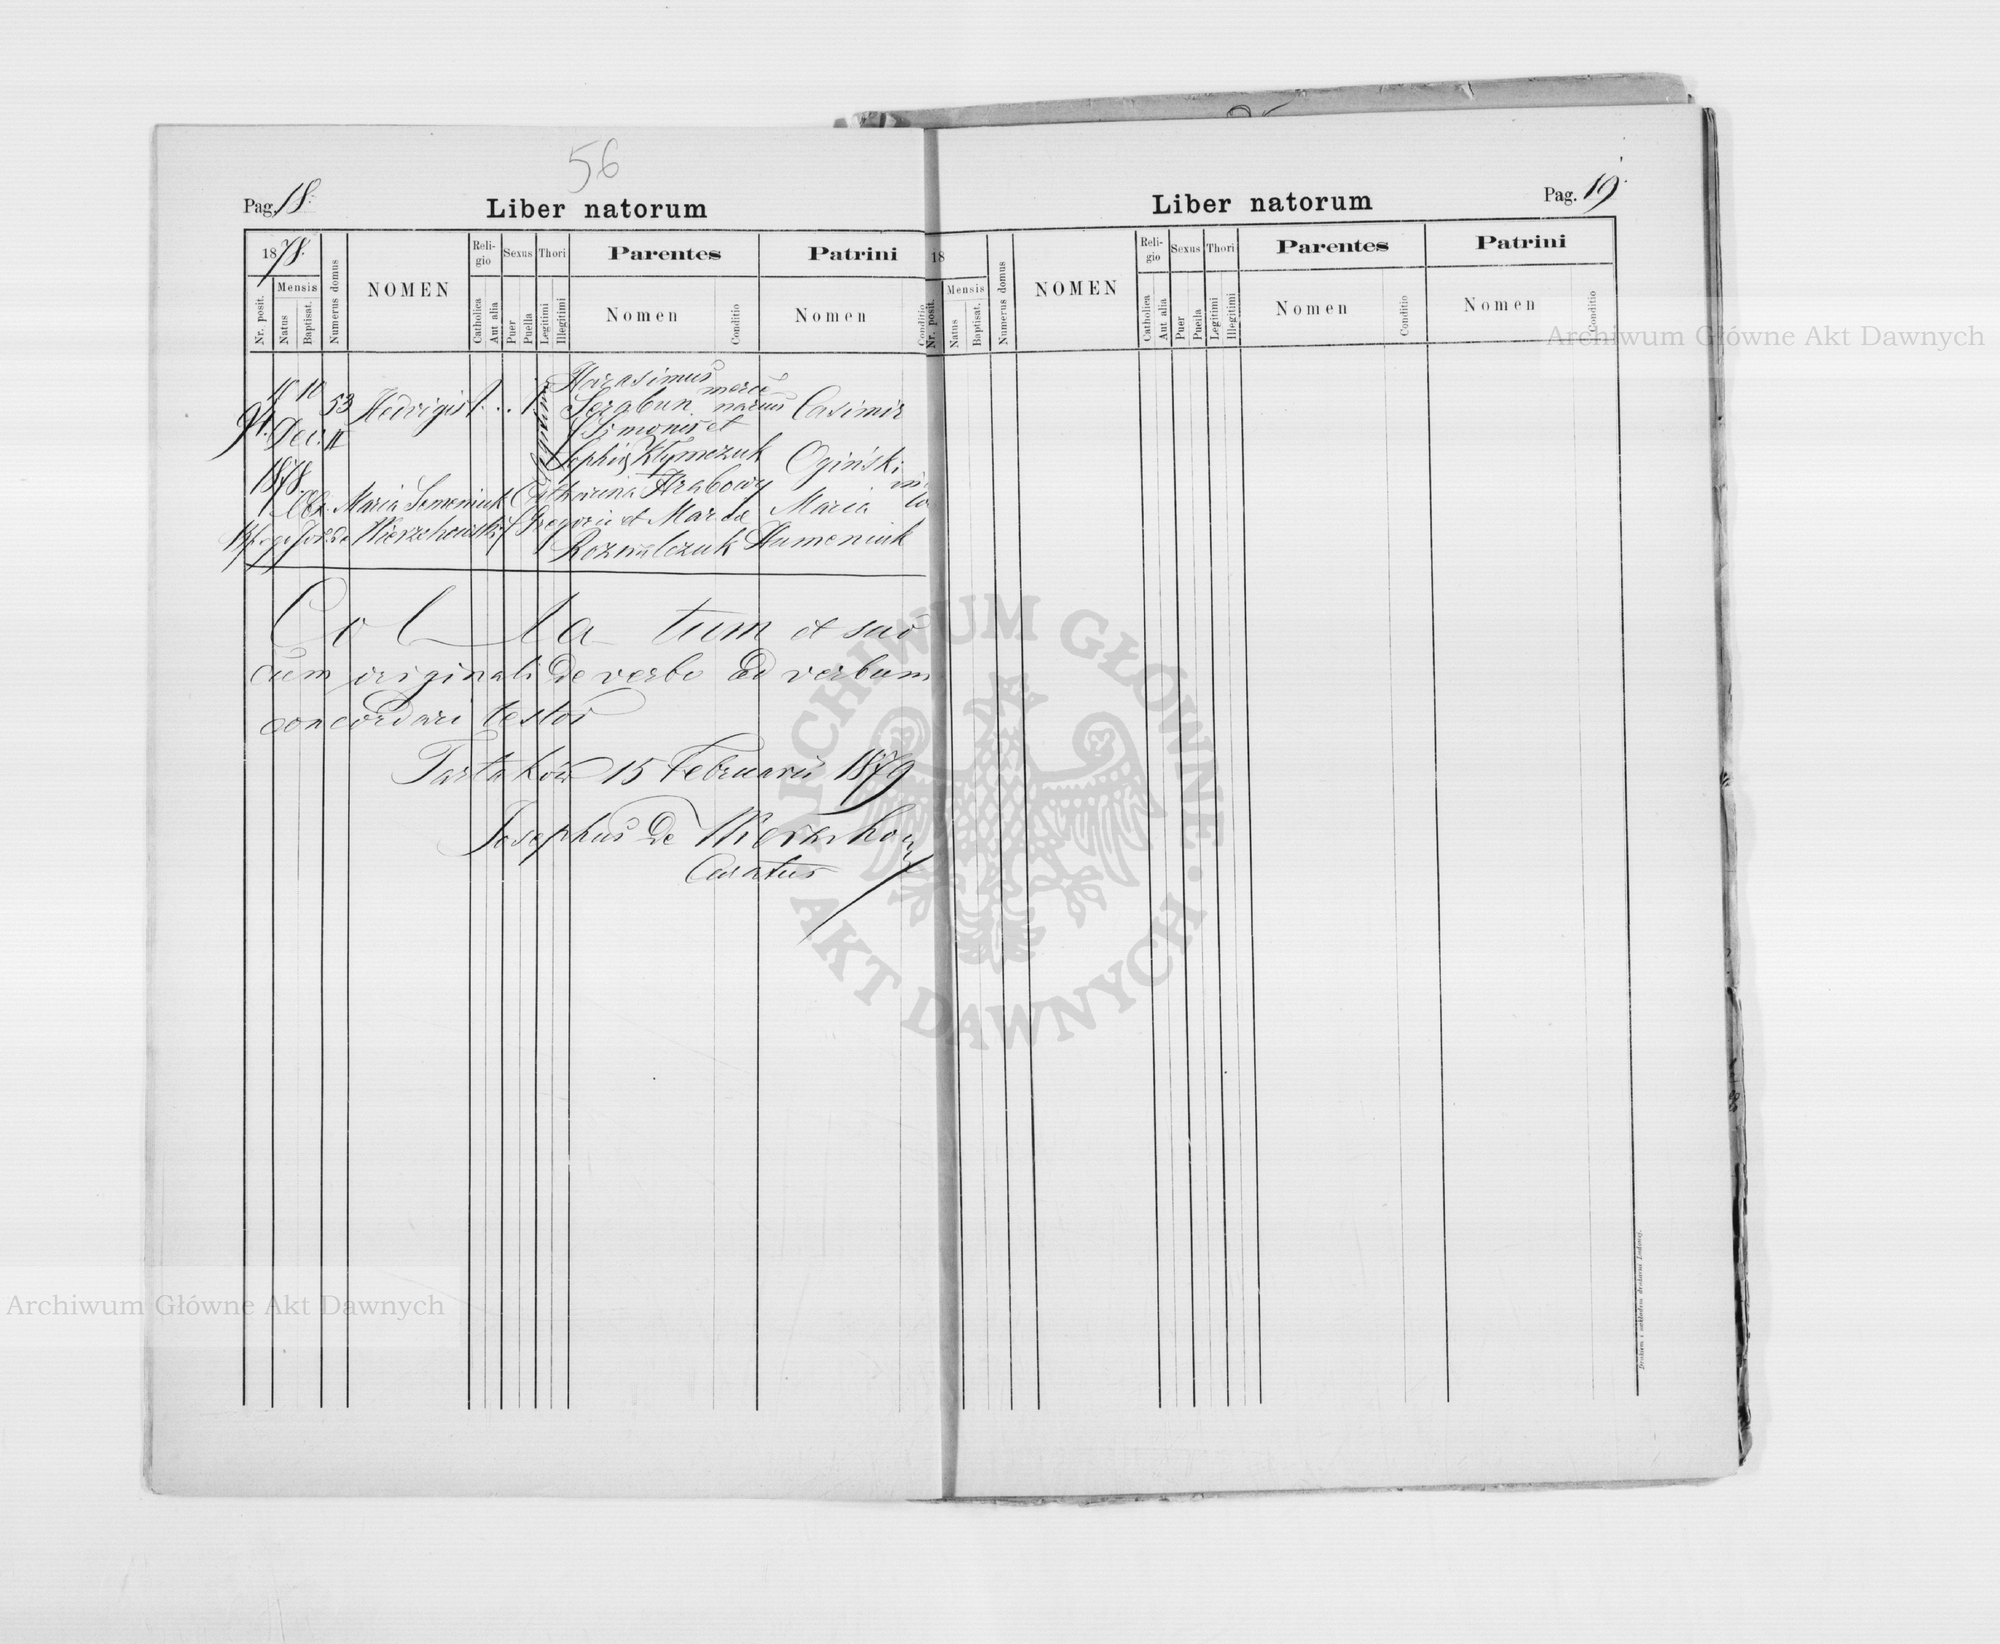 56
Pag. 18.
Liber natorum
1878.
Mensis
Nr. posit.
Natus
Baptisat.
Numerus domus
NOMEN
Reli-
gio
Catholica
Aut alia
Sexus
Puer
Puella
Thori
Legitimi
Illegitimi
Parentes
Nomen
Conditio
Patrini
Nomen
Conditio
91. 10 Dec. 1878 53 Hedvigis 1 .. 1
Harasimus
Serabun
Simonis et
Sophia Klymczuk
Casimir
Ogiński
Obs. Maria Semeniuk Catharina Hrabowy Maria
Gregorii et Maria Humeniuk
Col la tum et suo
cum originali de verbo ad verbum
concordari testor
Tartaków 15 Februarii 1879
Josephus de
Curatus
Liber natorum
Pag. 19.
18
Mensis
Nr. posit.
Natus
Baptisat.
Numerus domus
NOMEN
Reli-
gio
Catholica
Aut alia
Sexus
Puer
Puella
Thori
Legitimi
Illegitimi
Parentes
Nomen
Conditio
Patrini
Nomen
Conditio
Archiwum Główne Akt Dawnych
ARCHIWUM GŁÓWNE
AKT DAWNYCH
Archiwum Główne Akt Dawnych